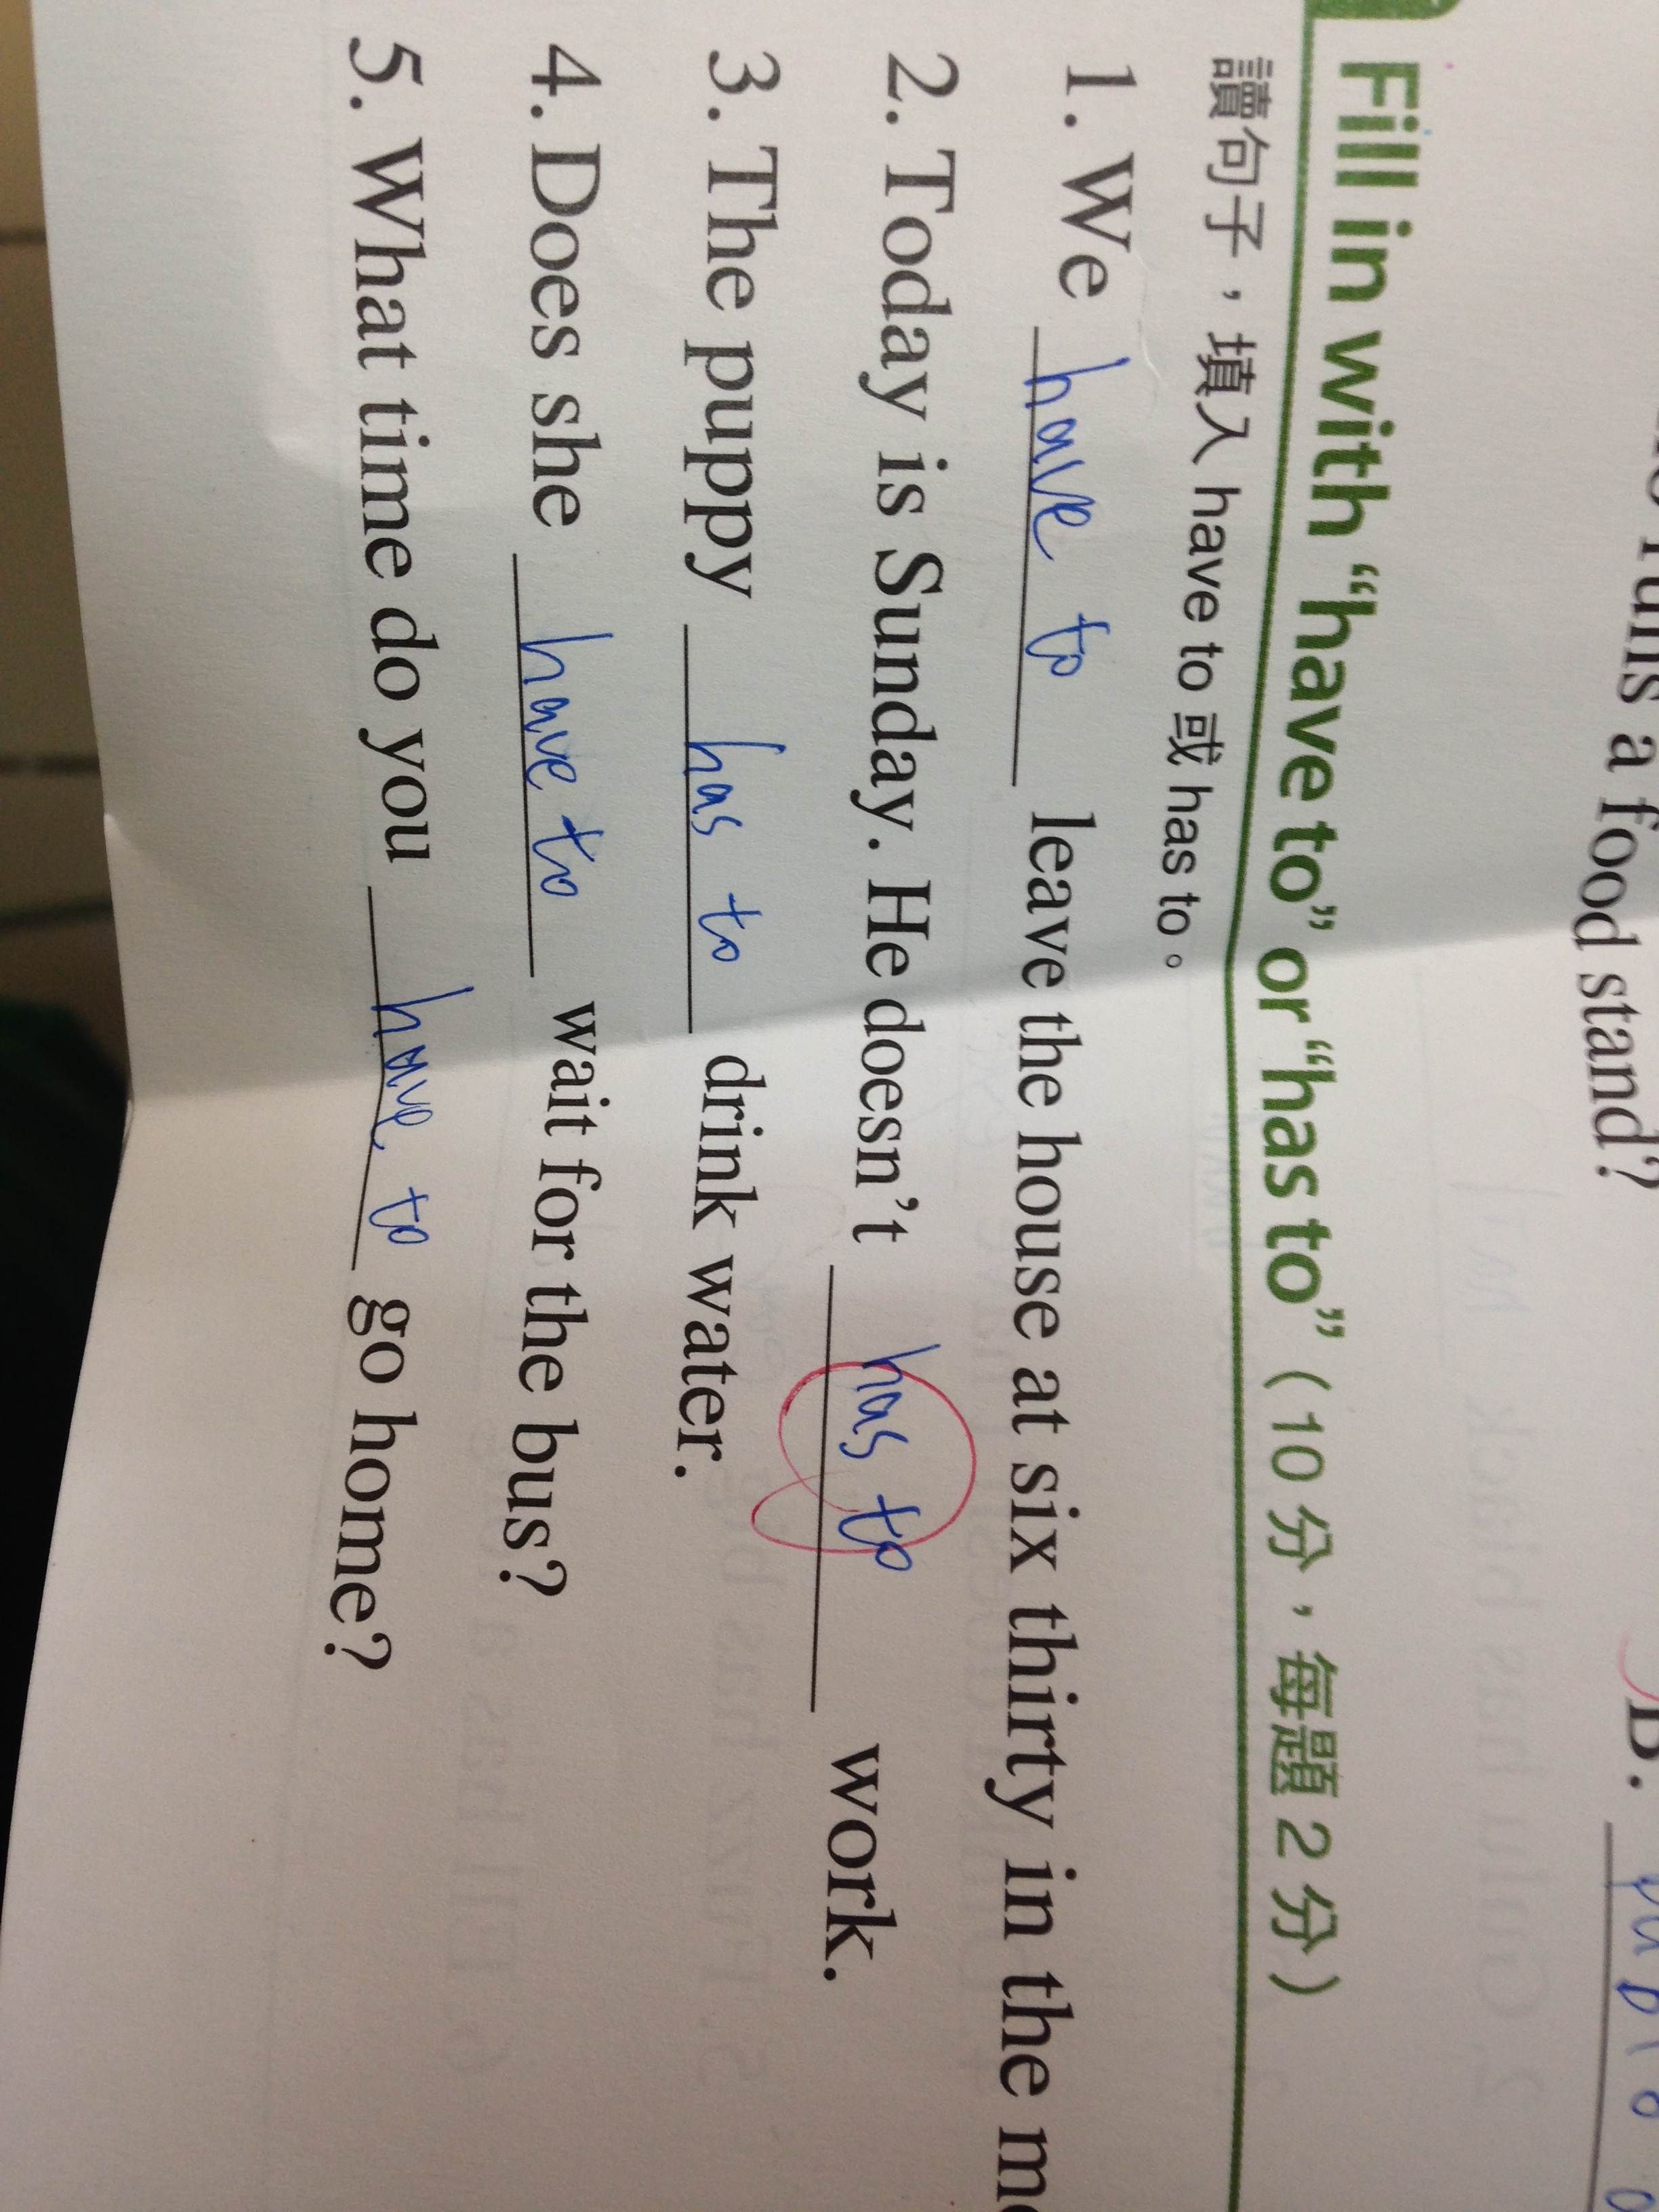 runs a food stand?
B.
Fill in with “have to” or “has to” (10 分，每題 2 分)
讀句子，填入 have to 或 has to。
1. We have to leave the house at six thirty in the
2. Today is Sunday. He doesn’t has to work.
3. The puppy has to drink water.
4. Does she have to wait for the bus?
5. What time do you have to go home?